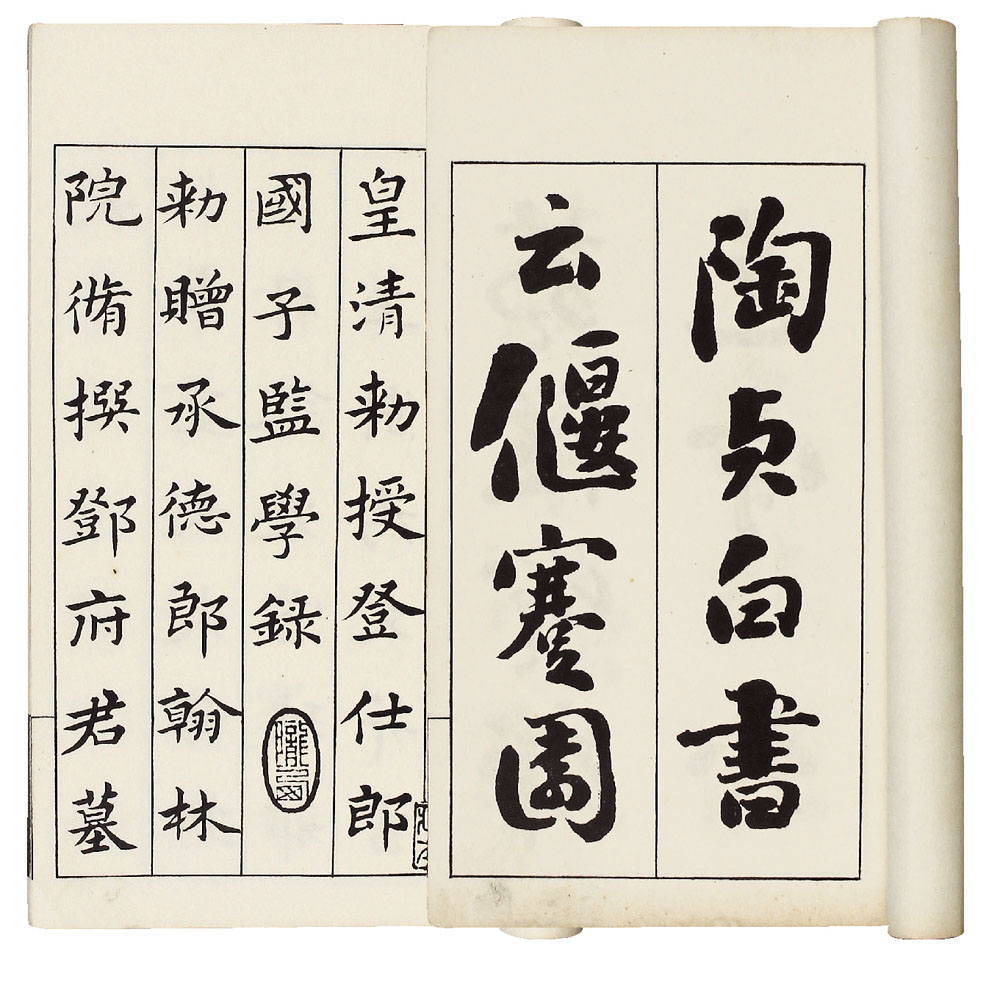 陶贞白書
云偃蹇園
皇清勅授登仕郎
國子監學録
勅贈承德郎翰林
院脩撰鄧府君墓